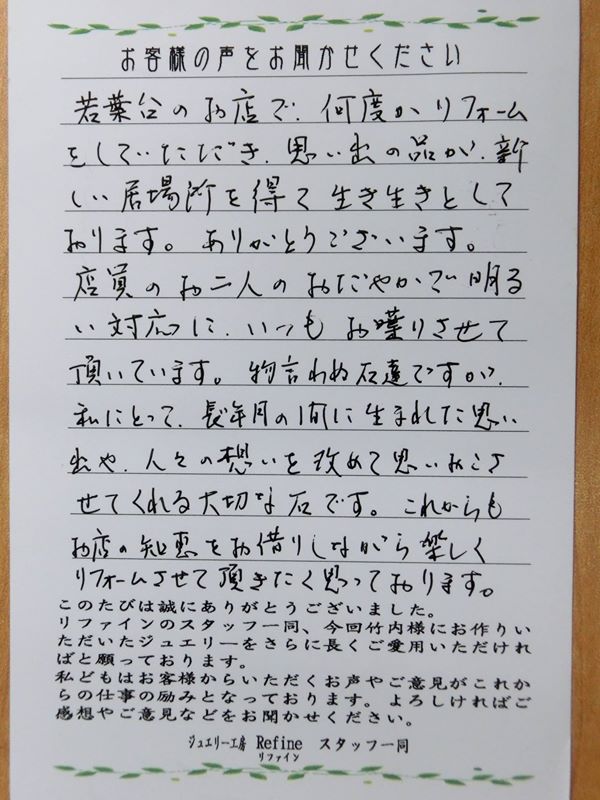 お客様の声をお聞かせください
若葉台のお店で、何度かリフォーム
をしていただき、思い出の品が、新
しい居場所を得て生き生きとして
おります。ありがとうございます。
店員のお二人のおだやかで明る
い対応に、いつもお喋りさせて
頂いています。物言わぬ石達ですが、
私にとって、長年月の間に生まれた思い
出や、人々の想いを改めて思いおこさ
せてくれる大切な石です。これからも
お店の知恵をお借りしながら楽しく
リフォームさせて頂きたく思っております。
このたびは誠にありがとうございました。
リファインのスタッフ一同、今回竹内様にお作りい
ただいたジュエリーをさらに長くご愛用いただけれ
ばと願っております。
私どもはお客様からいただくお声やご意見がこれか
らの仕事の励みとなっております。よろしければご
感想やご意見などをお聞かせください。
ジュエリー工房 Refine スタッフ一同
リファイン